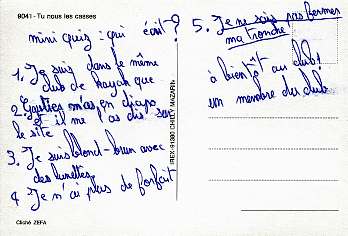 9041 - Tu nous les casses
mini quiz : qui écrit ?
1. Je suis dans le même
club de kayak que
2. m'as en
et il me l'as dis sur
le site
3. Je suis blond-brun avec
des lunettes
4 Je n'ai plus de forfait
Cliché ZEFA
IREX-91380 CHILLY MAZARIN
5. Je ne sais pas fermer
ma tronche
à bientôt au club !
un membre du club